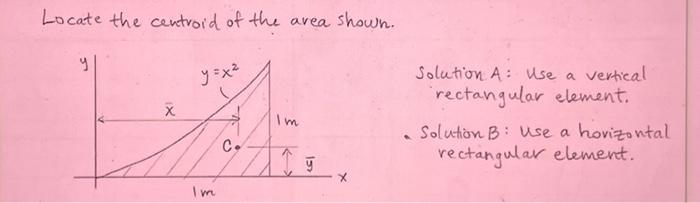 Locate the centroid of the area shown.
y
y=x²
x̄
1m
C.
ȳ
x
1m
Solution A: Use a vertical
rectangular element.
Solution B: Use a horizontal
rectangular element.